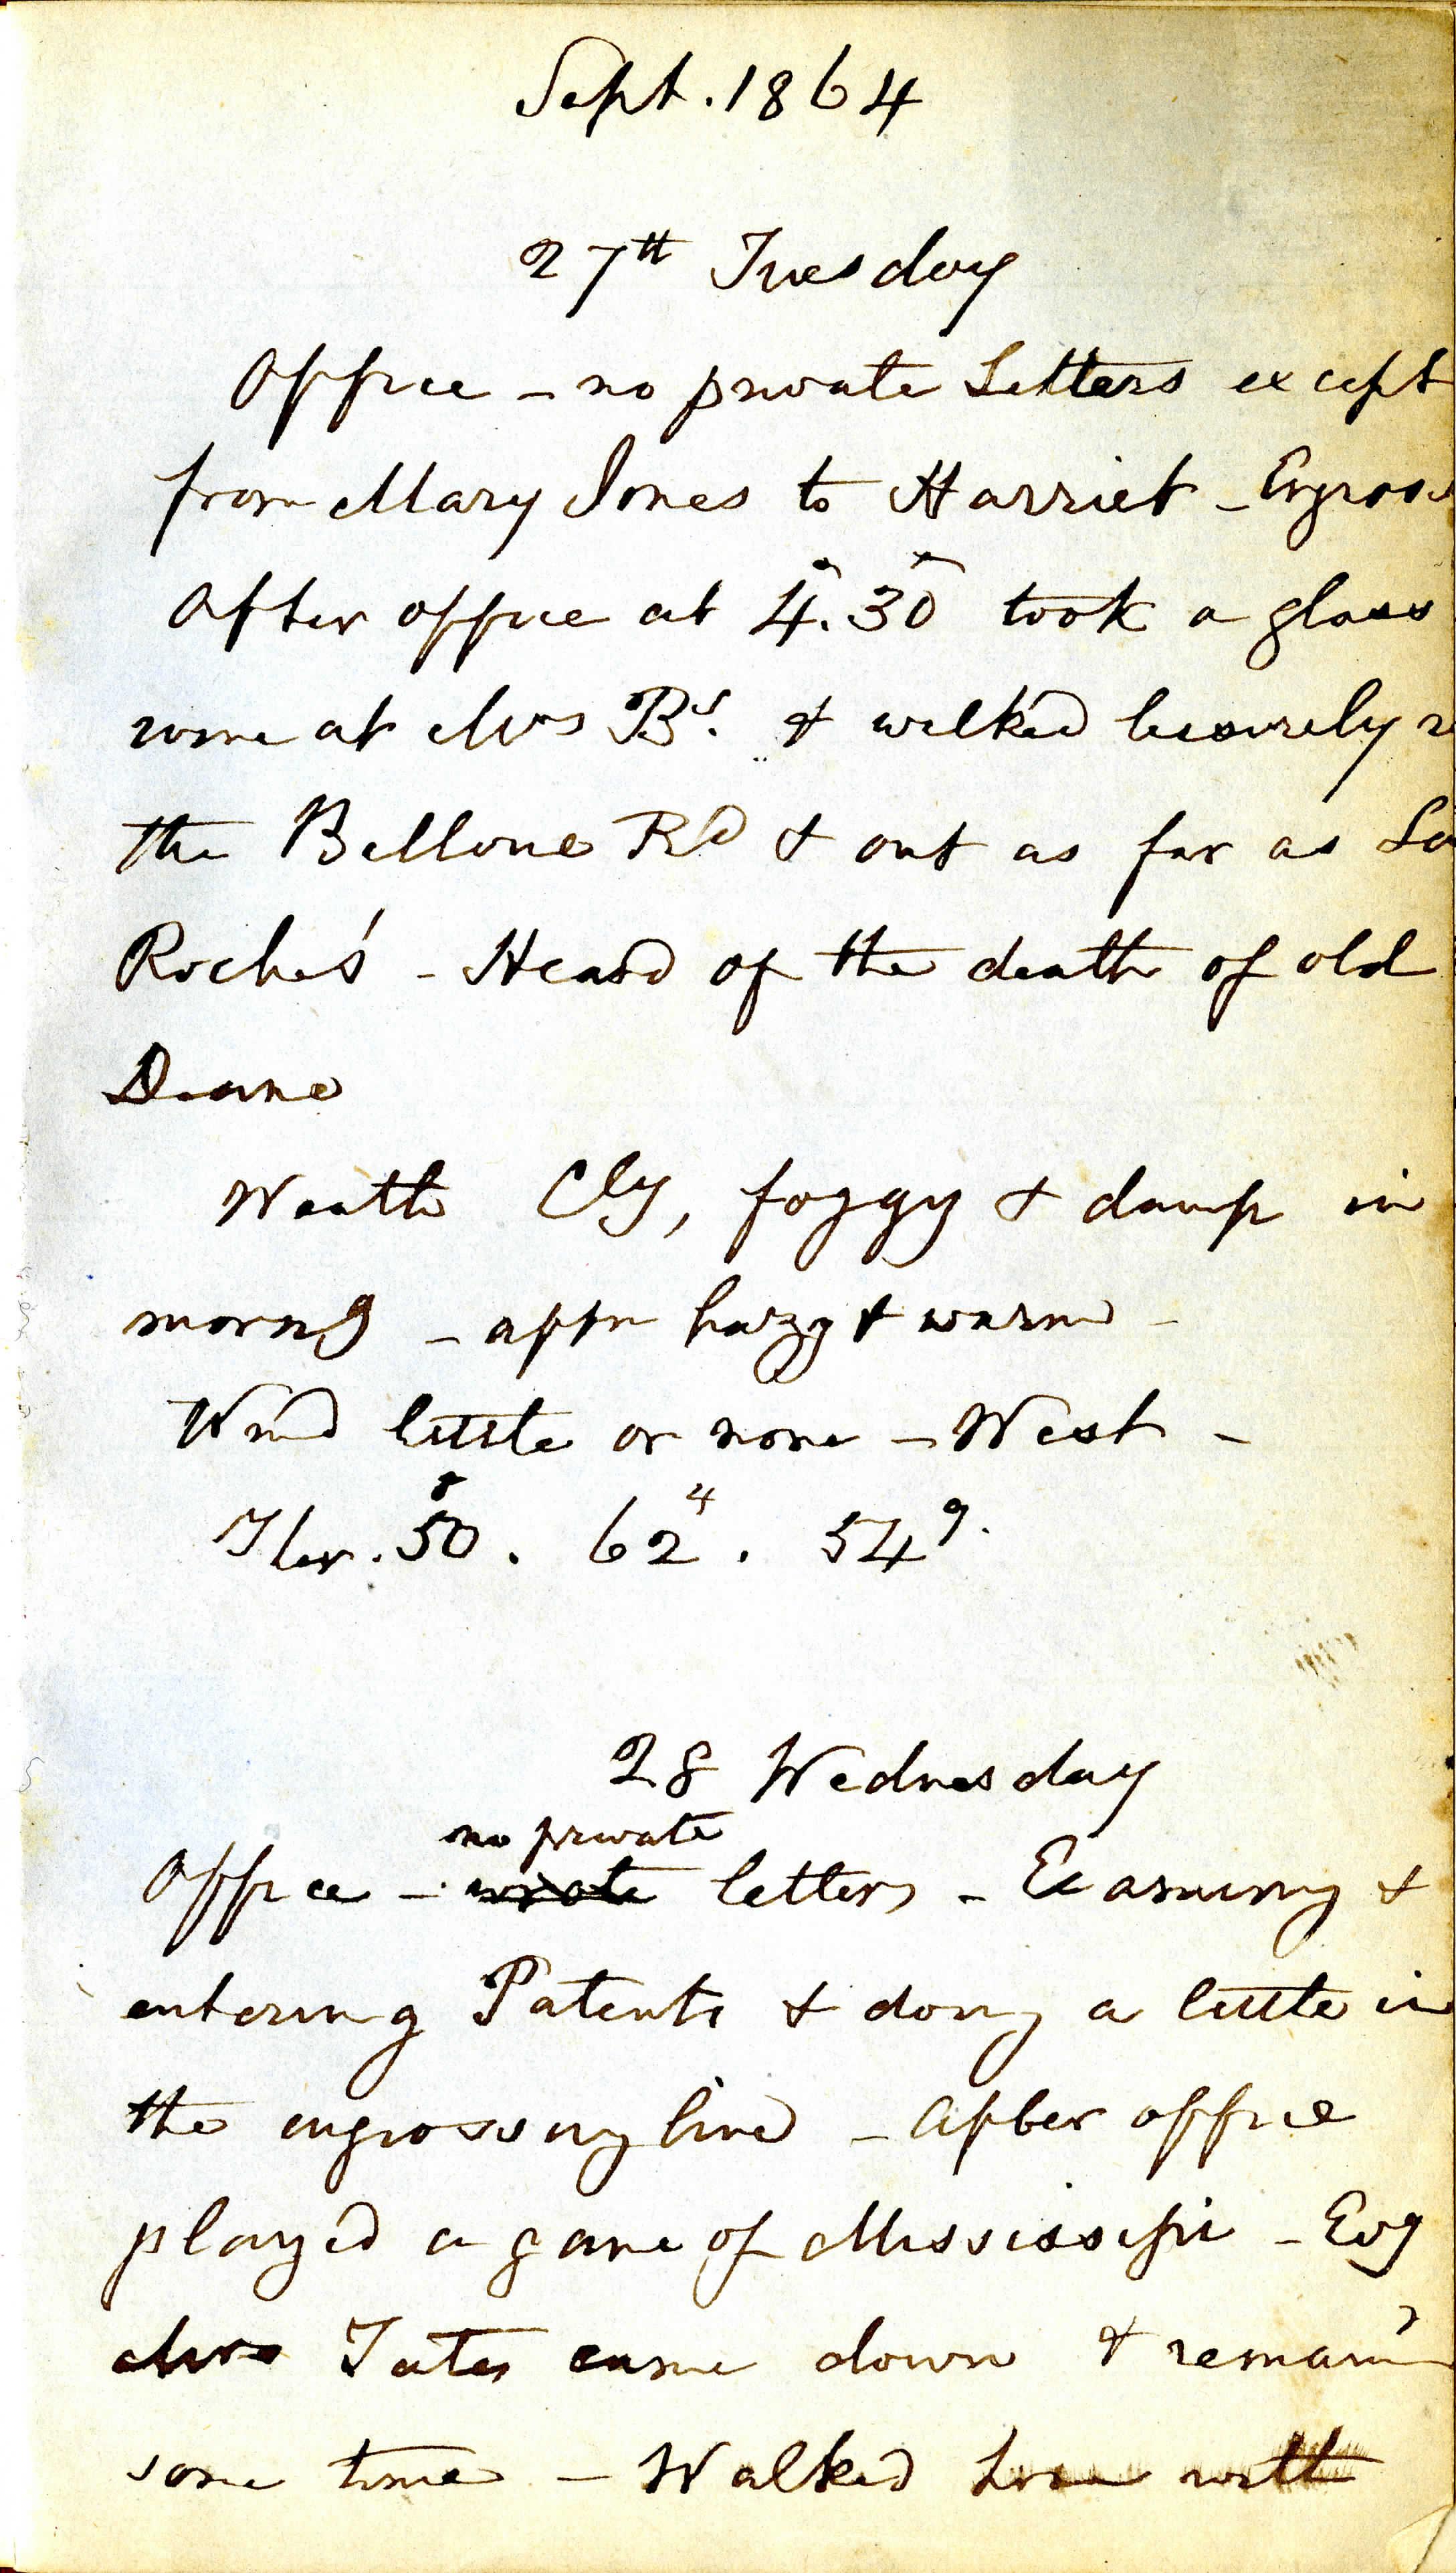 Sept. 1864
27th Tuesday
Office - no private Letters except
from Mary Jones to Harriet - Engross
After office at 4.30 took a glass
wine at Mrs Bs. & walked leisurely
the Bellone Rd & out as far as La
Roche's - Heard of the death of old
Deane
Weathr Cly, foggy & damp in
morng - aftn hazy & warm -
Wind little or none - West -
Ther. 50. 62 4. 54 9.
28 Wednesday
no private
Office - wrote letters - Examining &
entering Patents & doing a little in
the engrossing line - After office
played a game of Mississipi - Evg
Mrs Tates came down & remain'
some time - Walked home with